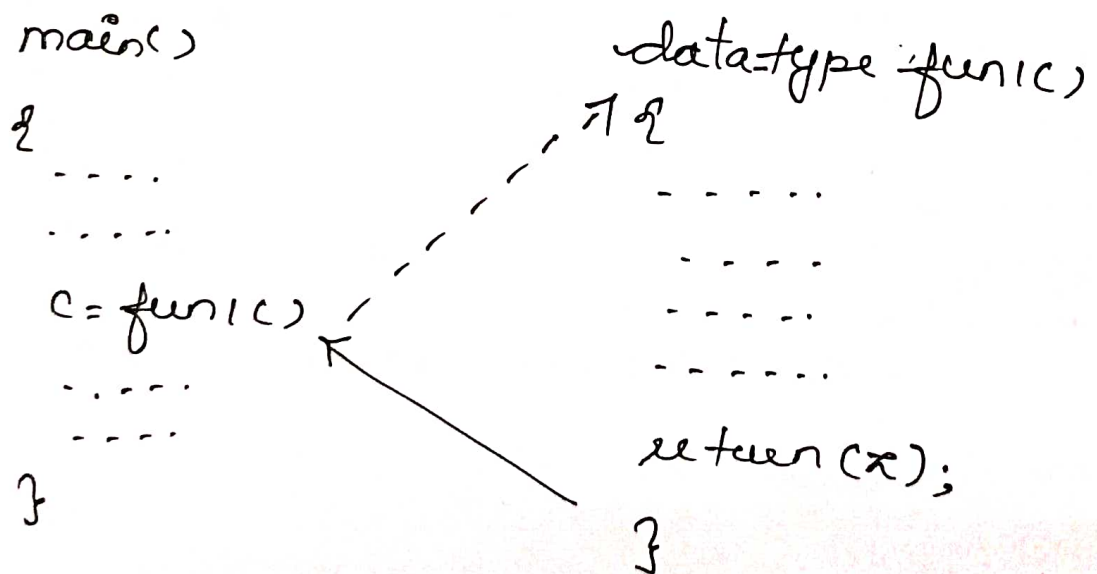 main()
{
- - - -
- - - - -
c = fun1()
- . - - -
- - - -
}
data-type fun1()
{
- - - - -
- - - -
- - - - -
- - - - - -
return (x);
}